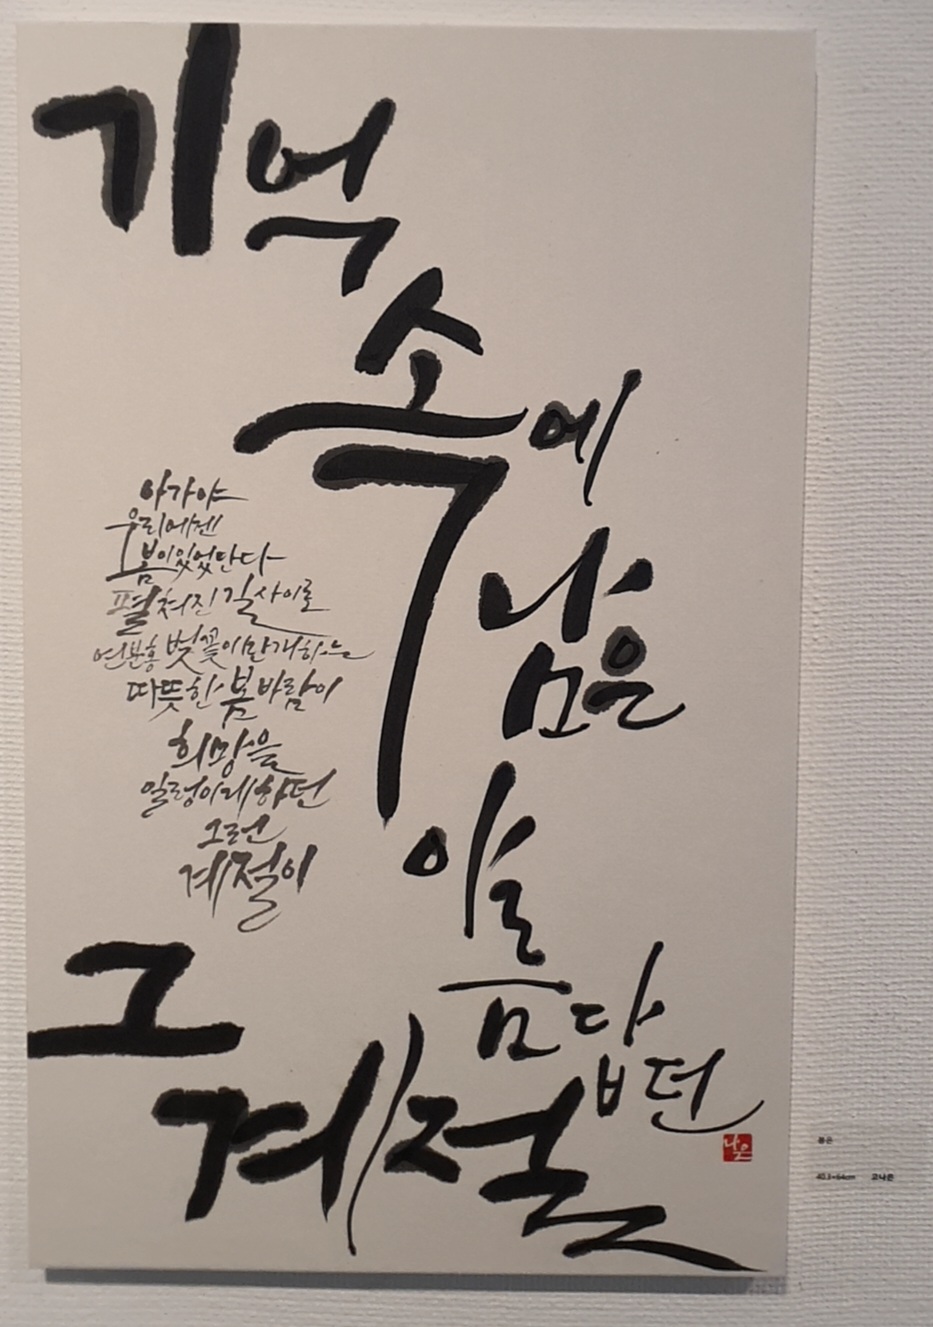 기억
속에
남은
아름답던
그
계절
아가야
우리에겐
봄이있었단다
펼쳐진 길 사이로
연분홍 벚꽃이 만개하는
따뜻한 봄바람이
희망을
일렁이게 하던
그런
계절이
나은
40.3×64cm 고나은